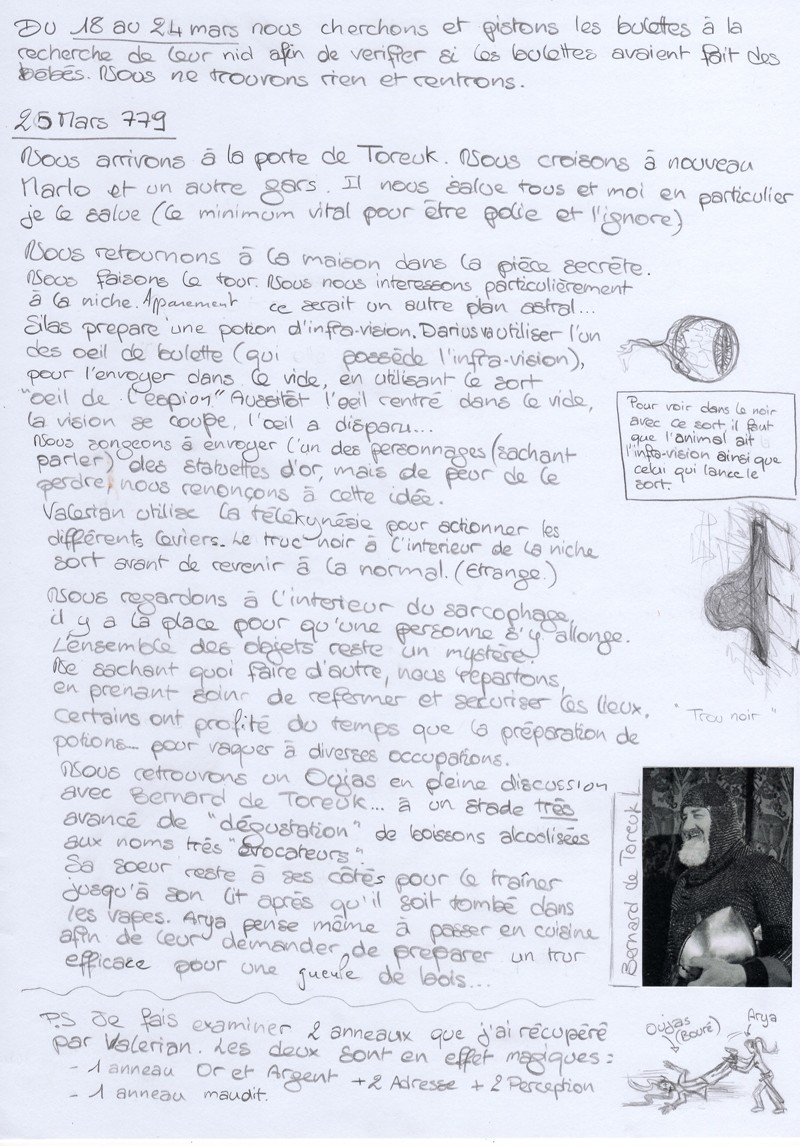 Du 18 au 24 mars nous cherchons et pistons les bulettes à la
recherche de leur nid afin de verifier si les bulettes avaient fait des
bébés. Nous ne trouvons rien et rentrons.
25 Mars 779
Nous arrivons à la porte de Toreuk. Nous croisons à nouveau
Marlo et un autre gars. Il nous salue tous et moi en particulier
je le salue (le minimum vital pour être polie et l'ignore)
Nous retournons à la maison dans la pièce secrète.
Nous faisons le tour. Nous nous interessons particulièrement
à la niche. Apparement ce serait un autre plan astral...
Silas prepare une potion d'infra-vision. Darius va utiliser l'un
des oeil de bulette (qui possède l'infra-vision),
pour l'envoyer dans le vide, en utilisant le sort
"oeil de l'espion". Aussitôt l'oeil rentré dans le vide,
la vision se coupe, l'oeil a disparu...
Nous songeons à envoyer l'un des personnages (sachant
parler) des statuettes d'or, mais de peur de le
perdre, nous renonçons à cette idée.
Valerian utilise la télékynésie pour actionner les
différents leviers. Le truc noir à l'interieur de la niche
sort avant de revenir à la normal. (Etrange.)
Nous regardons à l'interieur du sarcophage,
il y a la place pour qu'une personne s'y allonge.
L'ensemble des objets reste un mystère!
Ne sachant quoi faire d'autre, nous repartons,
en prenant soinr de refermer et securiser les lieux.
Certains ont profité du temps que la préparation de
potions... pour vaquer à diverses occupations.
Nous retrouvons un Oujas en pleine discussion
avec Bernard de Toreuk... à un stade très
avancé de "dégustation" de boissons alcoolisées
aux noms très "évocateurs".
Sa soeur reste à ses côtés pour le traîner
jusqu'à son lit après qu'il soit tombé dans
les vapes. Arya pense même à passer en cuisine
afin de leur demander de preparer un truc
efficace pour une gueule de bois...
P.S Je fais examiner 2 anneaux que j'ai récupéré
par Valerian. Les deux sont en effet magiques :
- 1 anneau Or et Argent +2 Adresse +2 Perception
- 1 anneau maudit.
Pour voir dans le noir
avec ce sort il faut
que l'animal ait
l'infra-vision ainsi que
celui qui lance le
sort.
"Trou noir"
Bernard de Toreuk
Oujas
(Bouré)
Arya